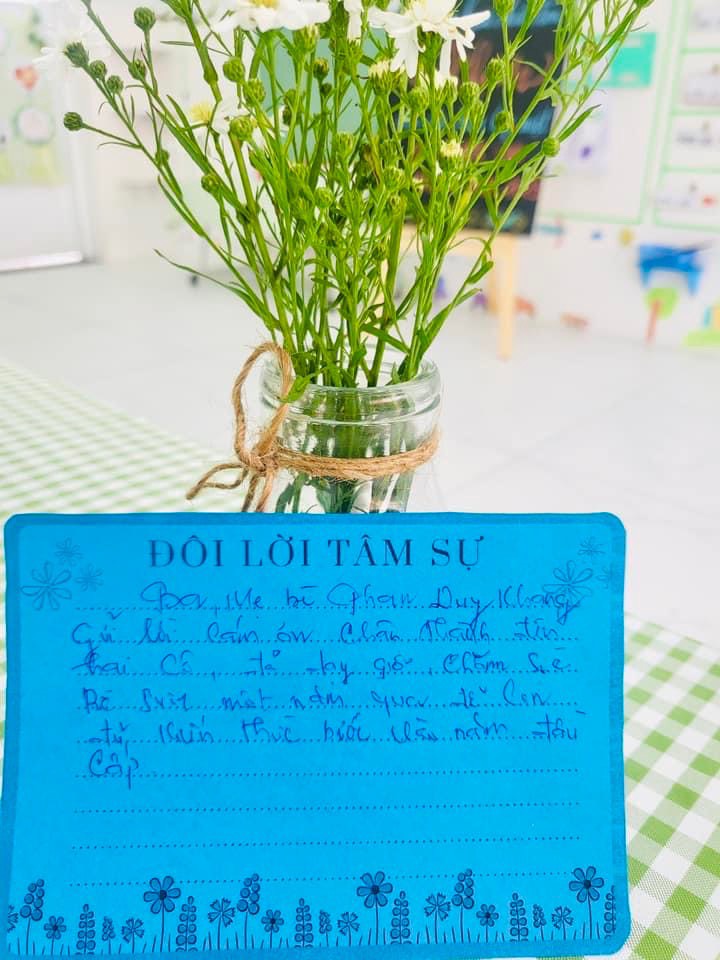 ĐÔI LỜI TÂM SỰ
Ba, Mẹ bé Phan Duy Khang
Gửi lời cám ơn chân thành đến
hai Cô, đã dạy giỗ, chăm sóc
Bé suốt một năm qua để con
đủ kiến thức bước vào năm đầu
Cấp